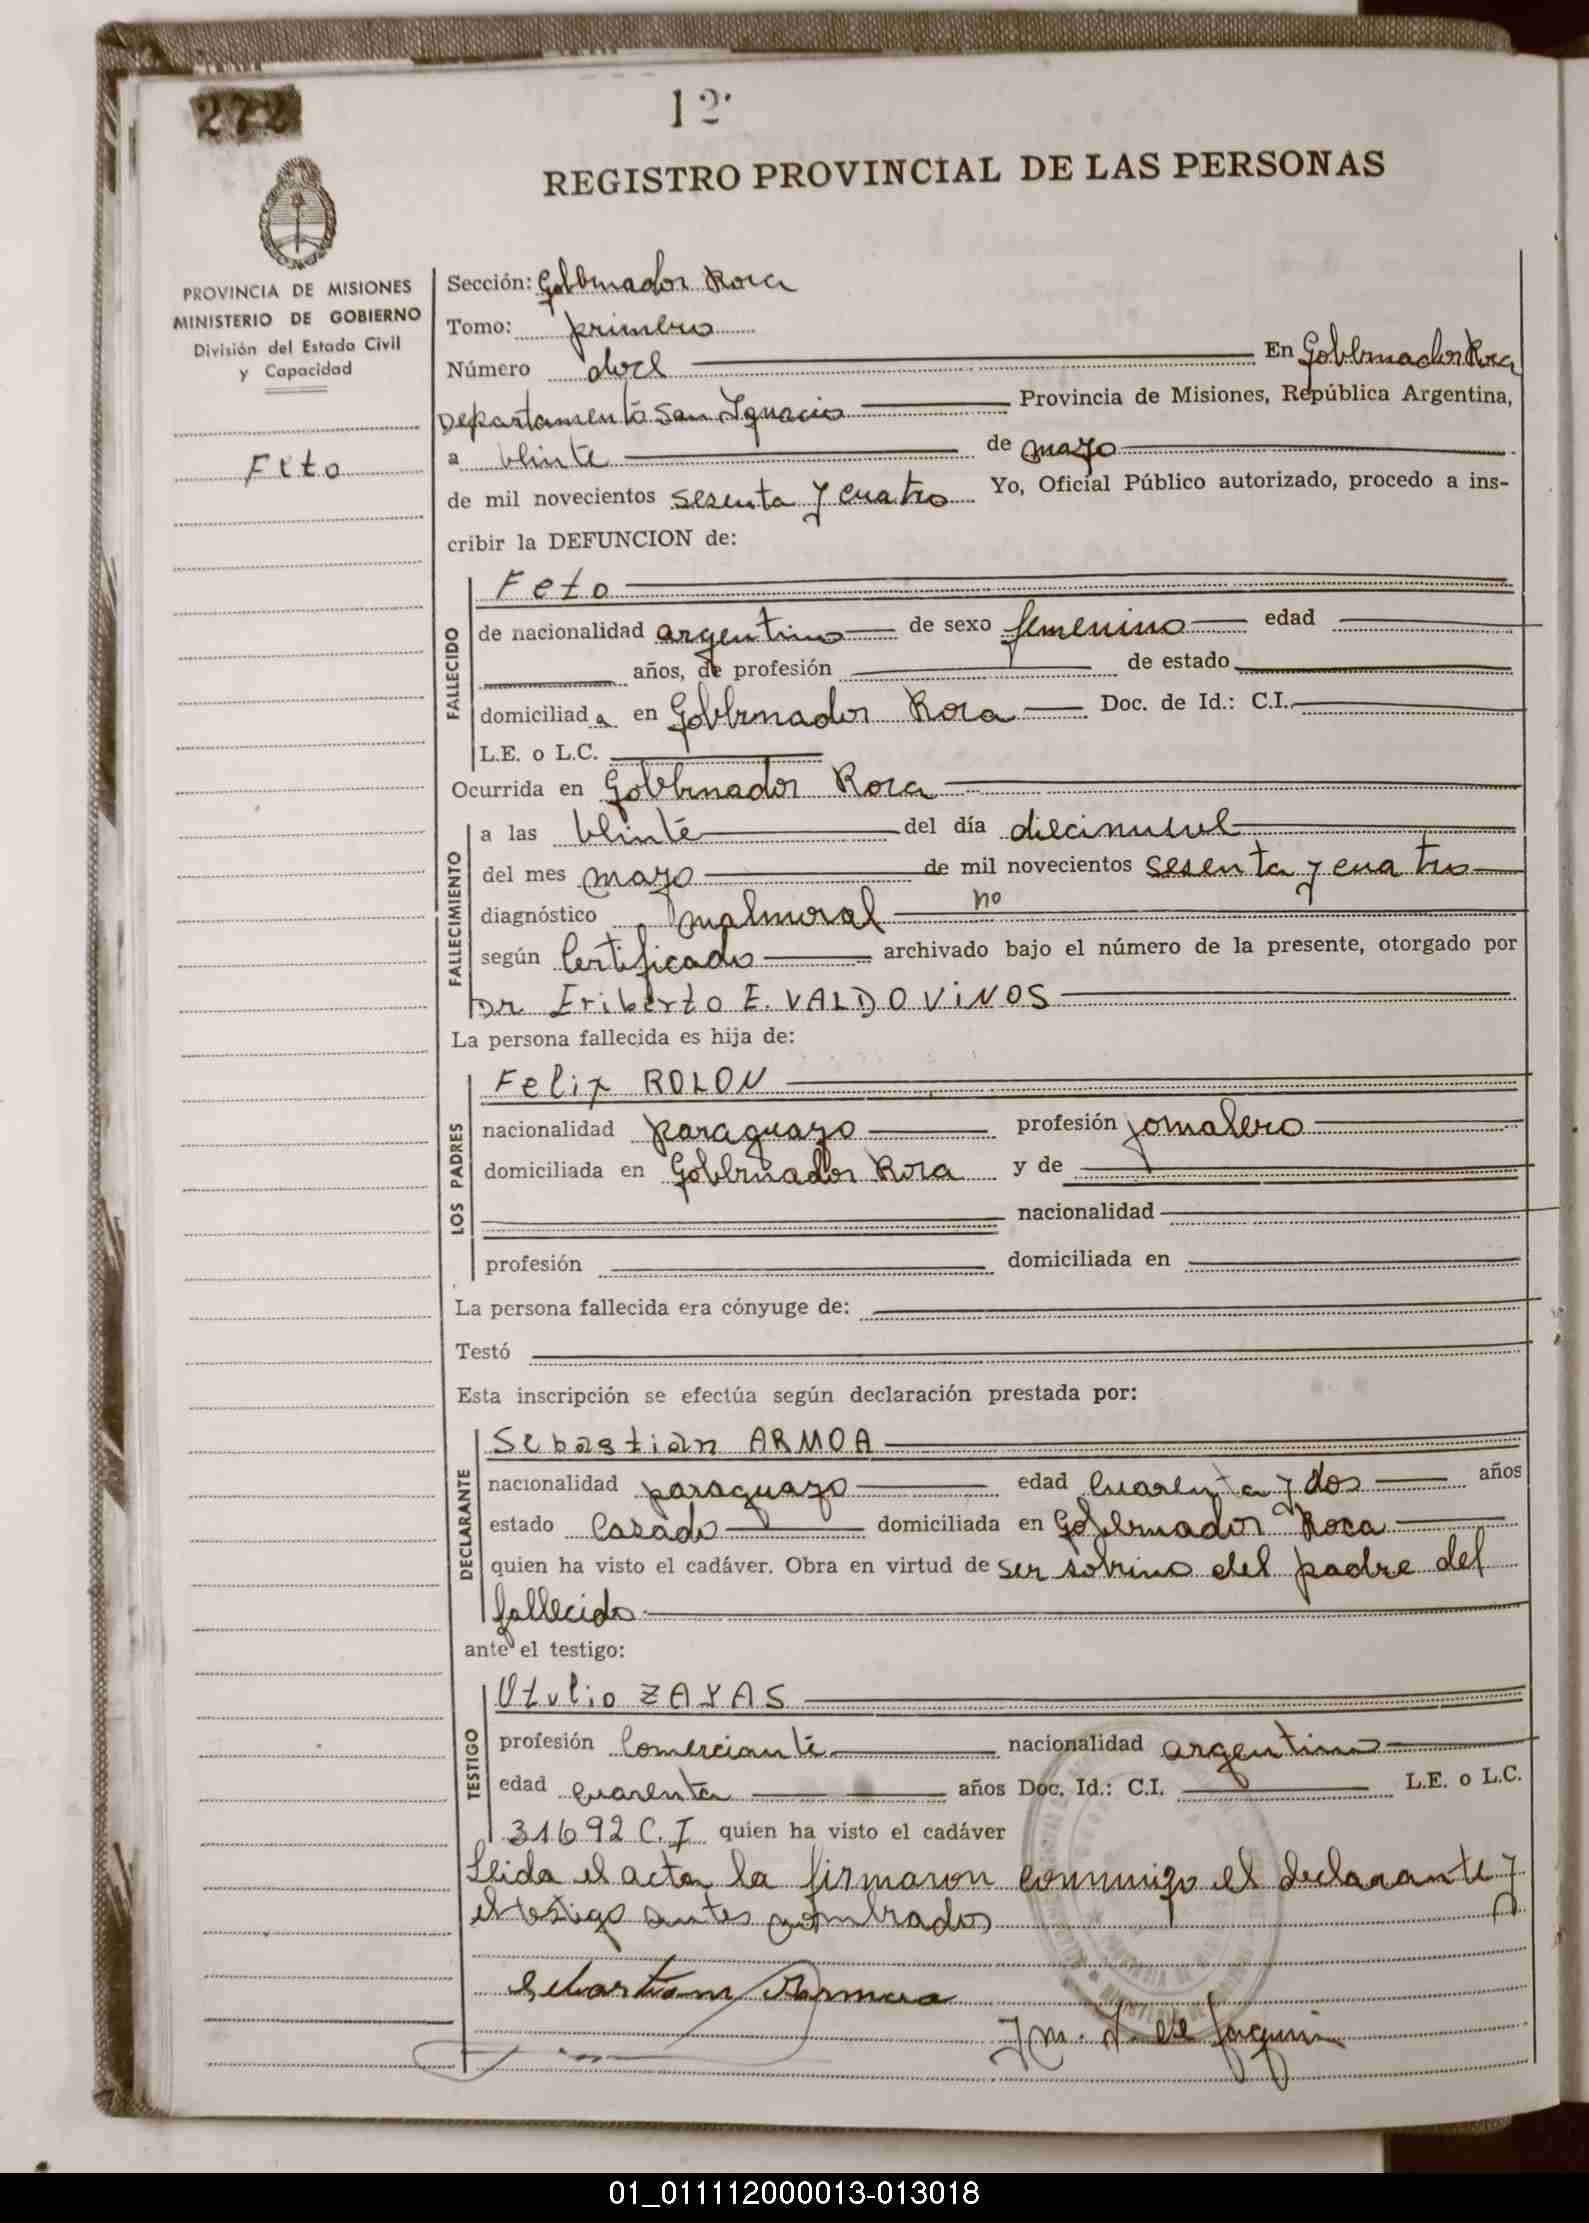 272
12
REGISTRO PROVINCIAL DE LAS PERSONAS
PROVINCIA DE MISIONES
MINISTERIO DE GOBIERNO
División del Estado Civil
y Capacidad
Feto
Sección: Gobernador Roca
Tomo: primero
Número doce En Gobernador Roca
Departamento San Ignacio Provincia de Misiones, República Argentina,
a veinte de mayo
de mil novecientos sesenta y cuatro Yo, Oficial Público autorizado, procedo a ins-
cribir la DEFUNCION de:
FALLECIDO
Feto
de nacionalidad argentino de sexo femenino edad
años, de profesión de estado
domiciliad a en Gobernador Roca Doc. de Id.: C.I.
L.E. o L.C.
Ocurrida en Gobernador Roca
FALLECIMIENTO
a las veinte del día diecinueve
del mes mayo de mil novecientos sesenta y cuatro
diagnóstico no
según Certificado archivado bajo el número de la presente, otorgado por
Dr Eriberto E. VALDOVINOS
La persona fallecida es hija de:
LOS PADRES
Felix ROLON
nacionalidad paraguayo profesión jornalero
domiciliada en Gobernador Roca y de
nacionalidad
profesión domiciliada en
La persona fallecida era cónyuge de:
Testó
Esta inscripción se efectúa según declaración prestada por:
DECLARANTE
Sebastian ARMOA
nacionalidad paraguayo edad cuarenta y dos años
estado Casado domiciliada en Gobernador Roca
quien ha visto el cadáver. Obra en virtud de ser sobrino del padre del
fallecido
ante el testigo:
TESTIGO
Otulio ZAYAS
profesión Comerciante nacionalidad argentino
edad cuarenta años Doc. Id.: C.I. L.E. o L.C.
31692 C.I. quien ha visto el cadáver
Leida el acta la firmaron conmigo el declarante y
el testigo antes nombrados
Sebastian Armoa
01_011112000013-013018